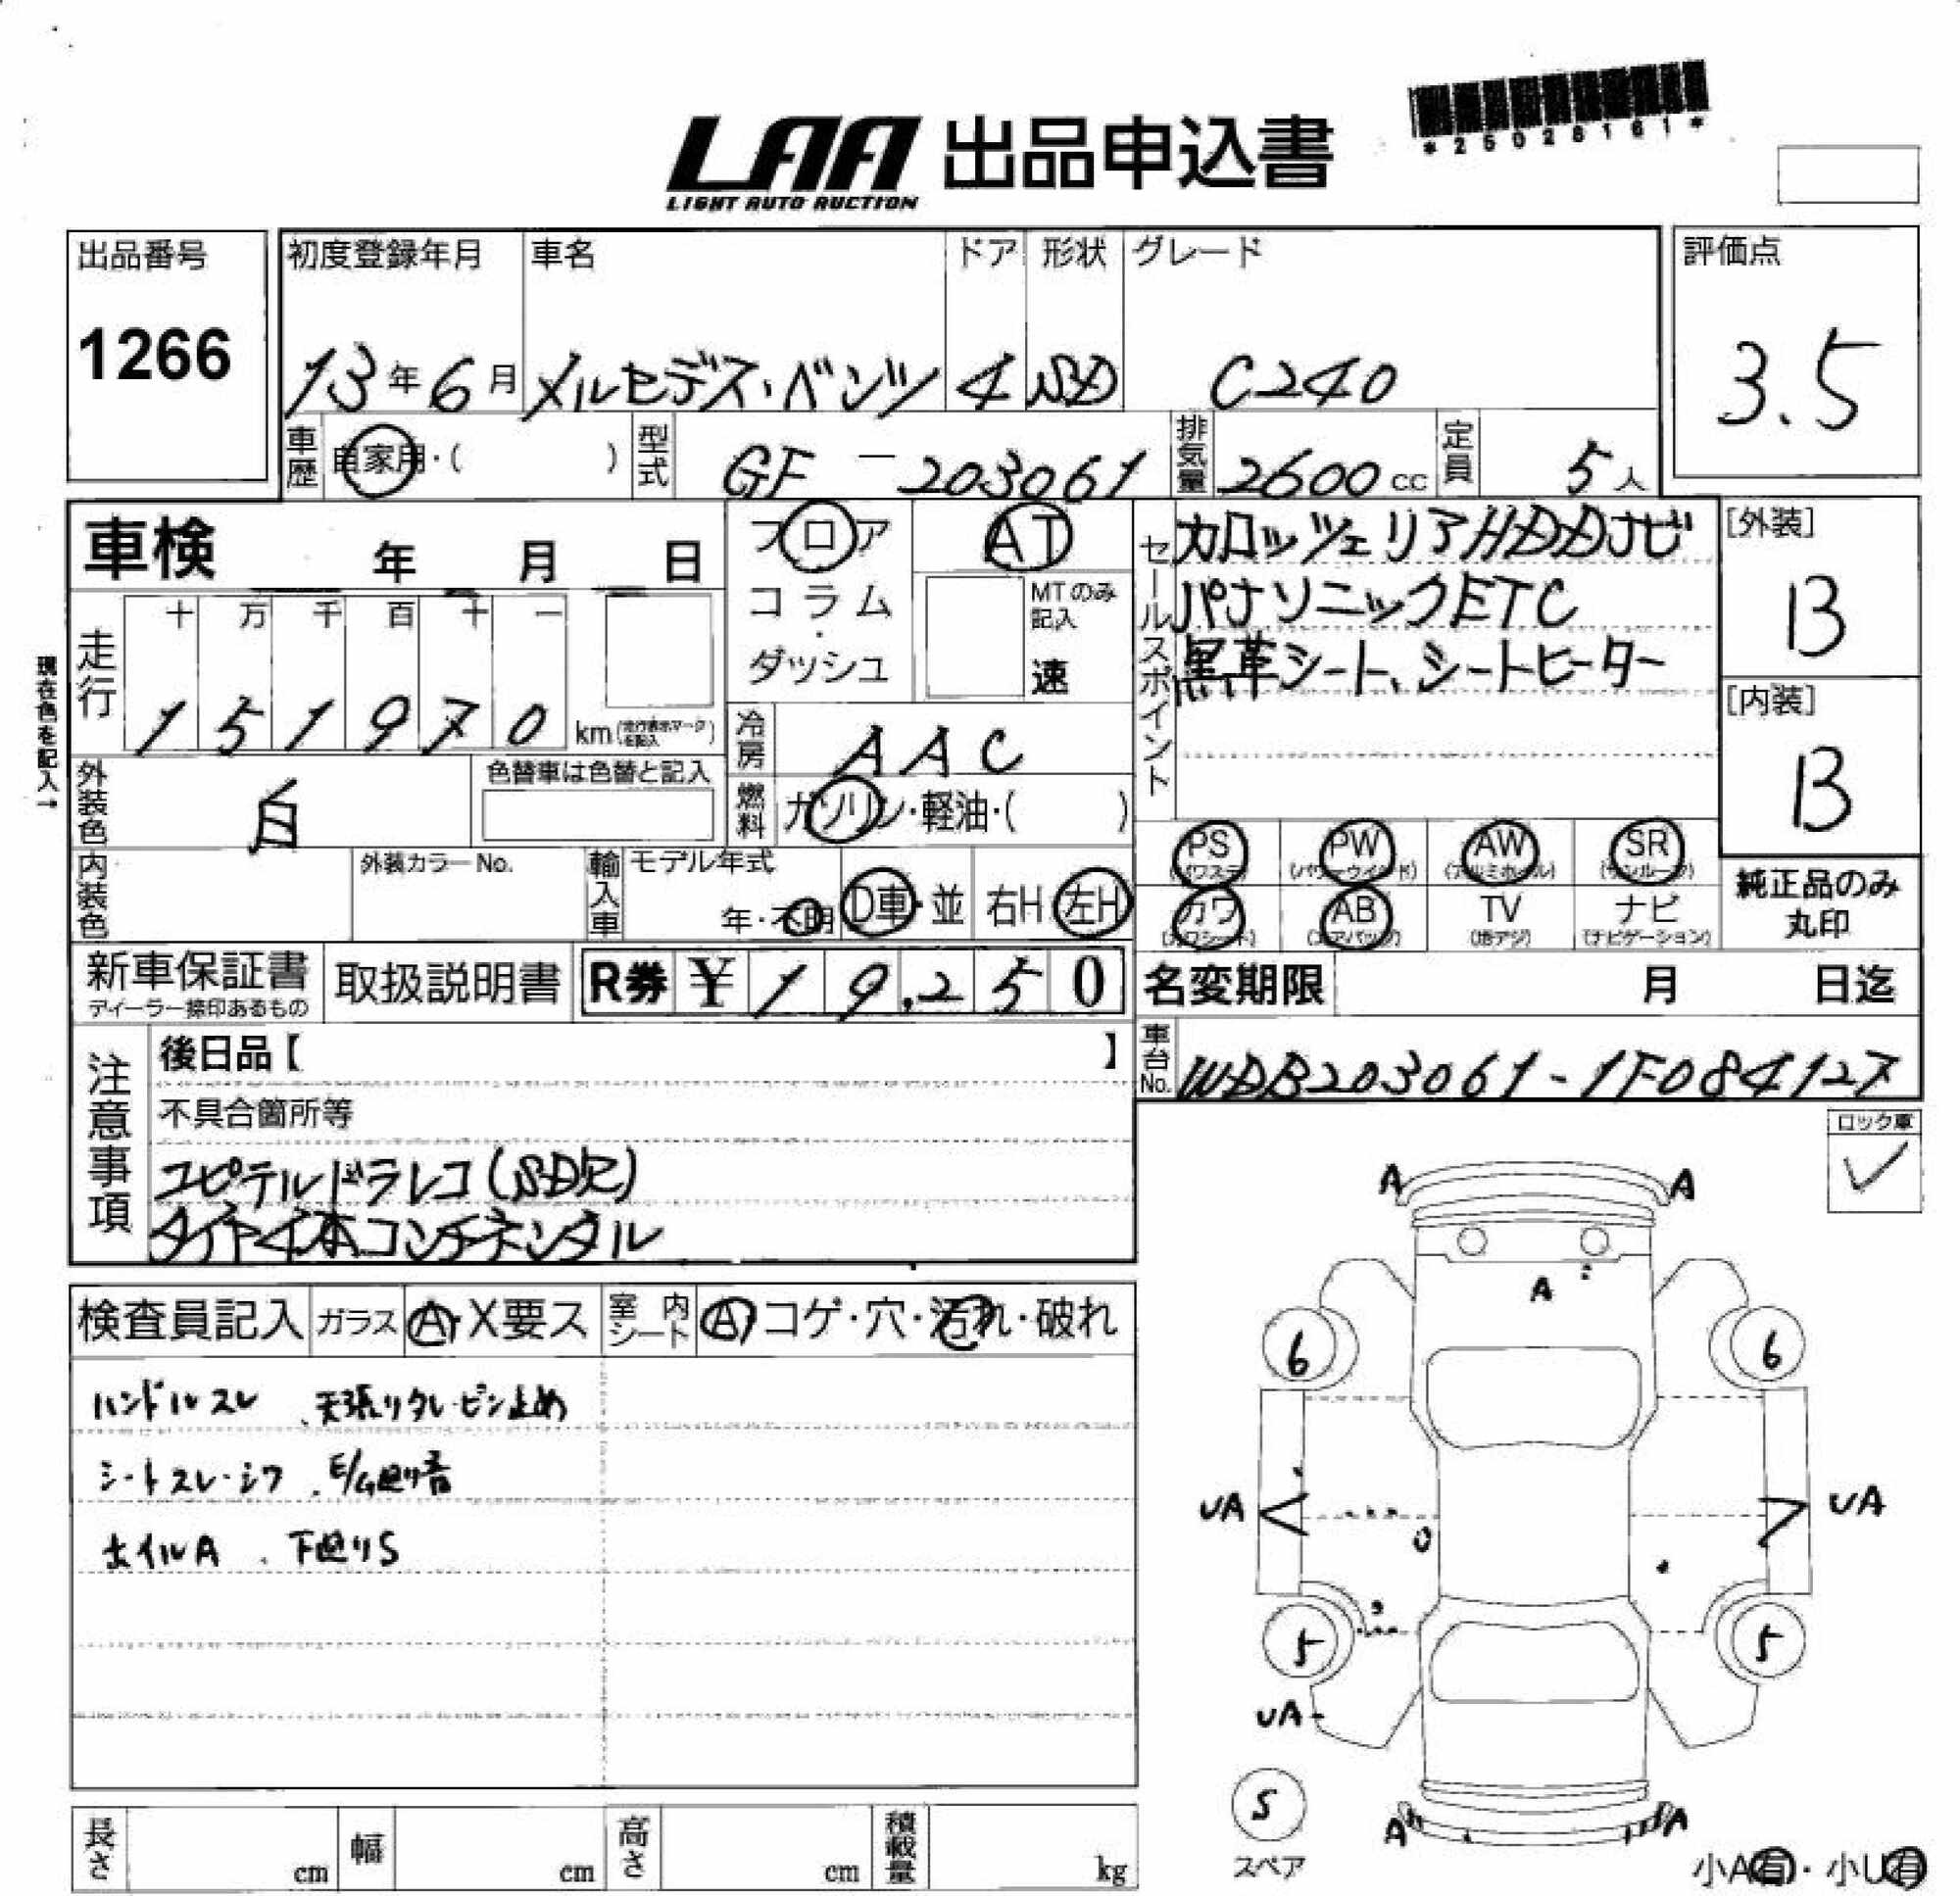 *25028161*
LAA 出品申込書
LIGHT AUTO AUCTION
出品番号
1266
初度登録年月 車名 ドア 形状 グレード
13年6月 メルセデス・ベンツ 4 SD C240
評価点
3.5
車歴 自家用・( ) 型式 GF-203061 排気量 2600cc 定員 5人
車検 年 月 日
フロア
コラム
・
ダッシュ
AT
MTのみ
記入
速
セールスポイント
カロッツェリアHDDナビ
パナソニックETC
黒革シート、シートヒーター
[外装]
B
[内装]
B
現在色を記入→
走行
十 万 千 百 十 一
1 5 1 9 7 0 km
冷房 AAC
外装色 白 色替車は色替と記入
燃料 ガソリン・軽油・( )
内装色 外装カラーNo. 輸入車 モデル年式
年・不明 D車・並 右H 左H
PS PW AW SR
(パワステ) (パワーウインド) (アルミホイル) (サンルーフ)
カワ AB TV ナビ
(カワシート) (エアバッグ) (地デジ) (ナビゲーション)
純正品のみ
丸印
新車保証書 取扱説明書 R券 ¥ 19,250
ディーラー捺印あるもの
名変期限 月 日迄
車台No. WDB203061-1F084127
注意事項
後日品【 】
不具合箇所等
ユピテルドラレコ(SD欠)
タイヤ4本コンチネンタル
ロック車
✓
検査員記入 ガラス A・X要ス 室内シート A コゲ・穴・汚れ・破れ
ハンドルスレ 、天張りタレ・ピン止め
シートスレ・シワ 、E/G廻り音
ホイルA 、下廻りS
A A
A
6 6
UA UA
U
5 5
UA
S
スペア
A A
小A有・小U有
長さ cm 幅 cm 高さ cm 積載量 kg